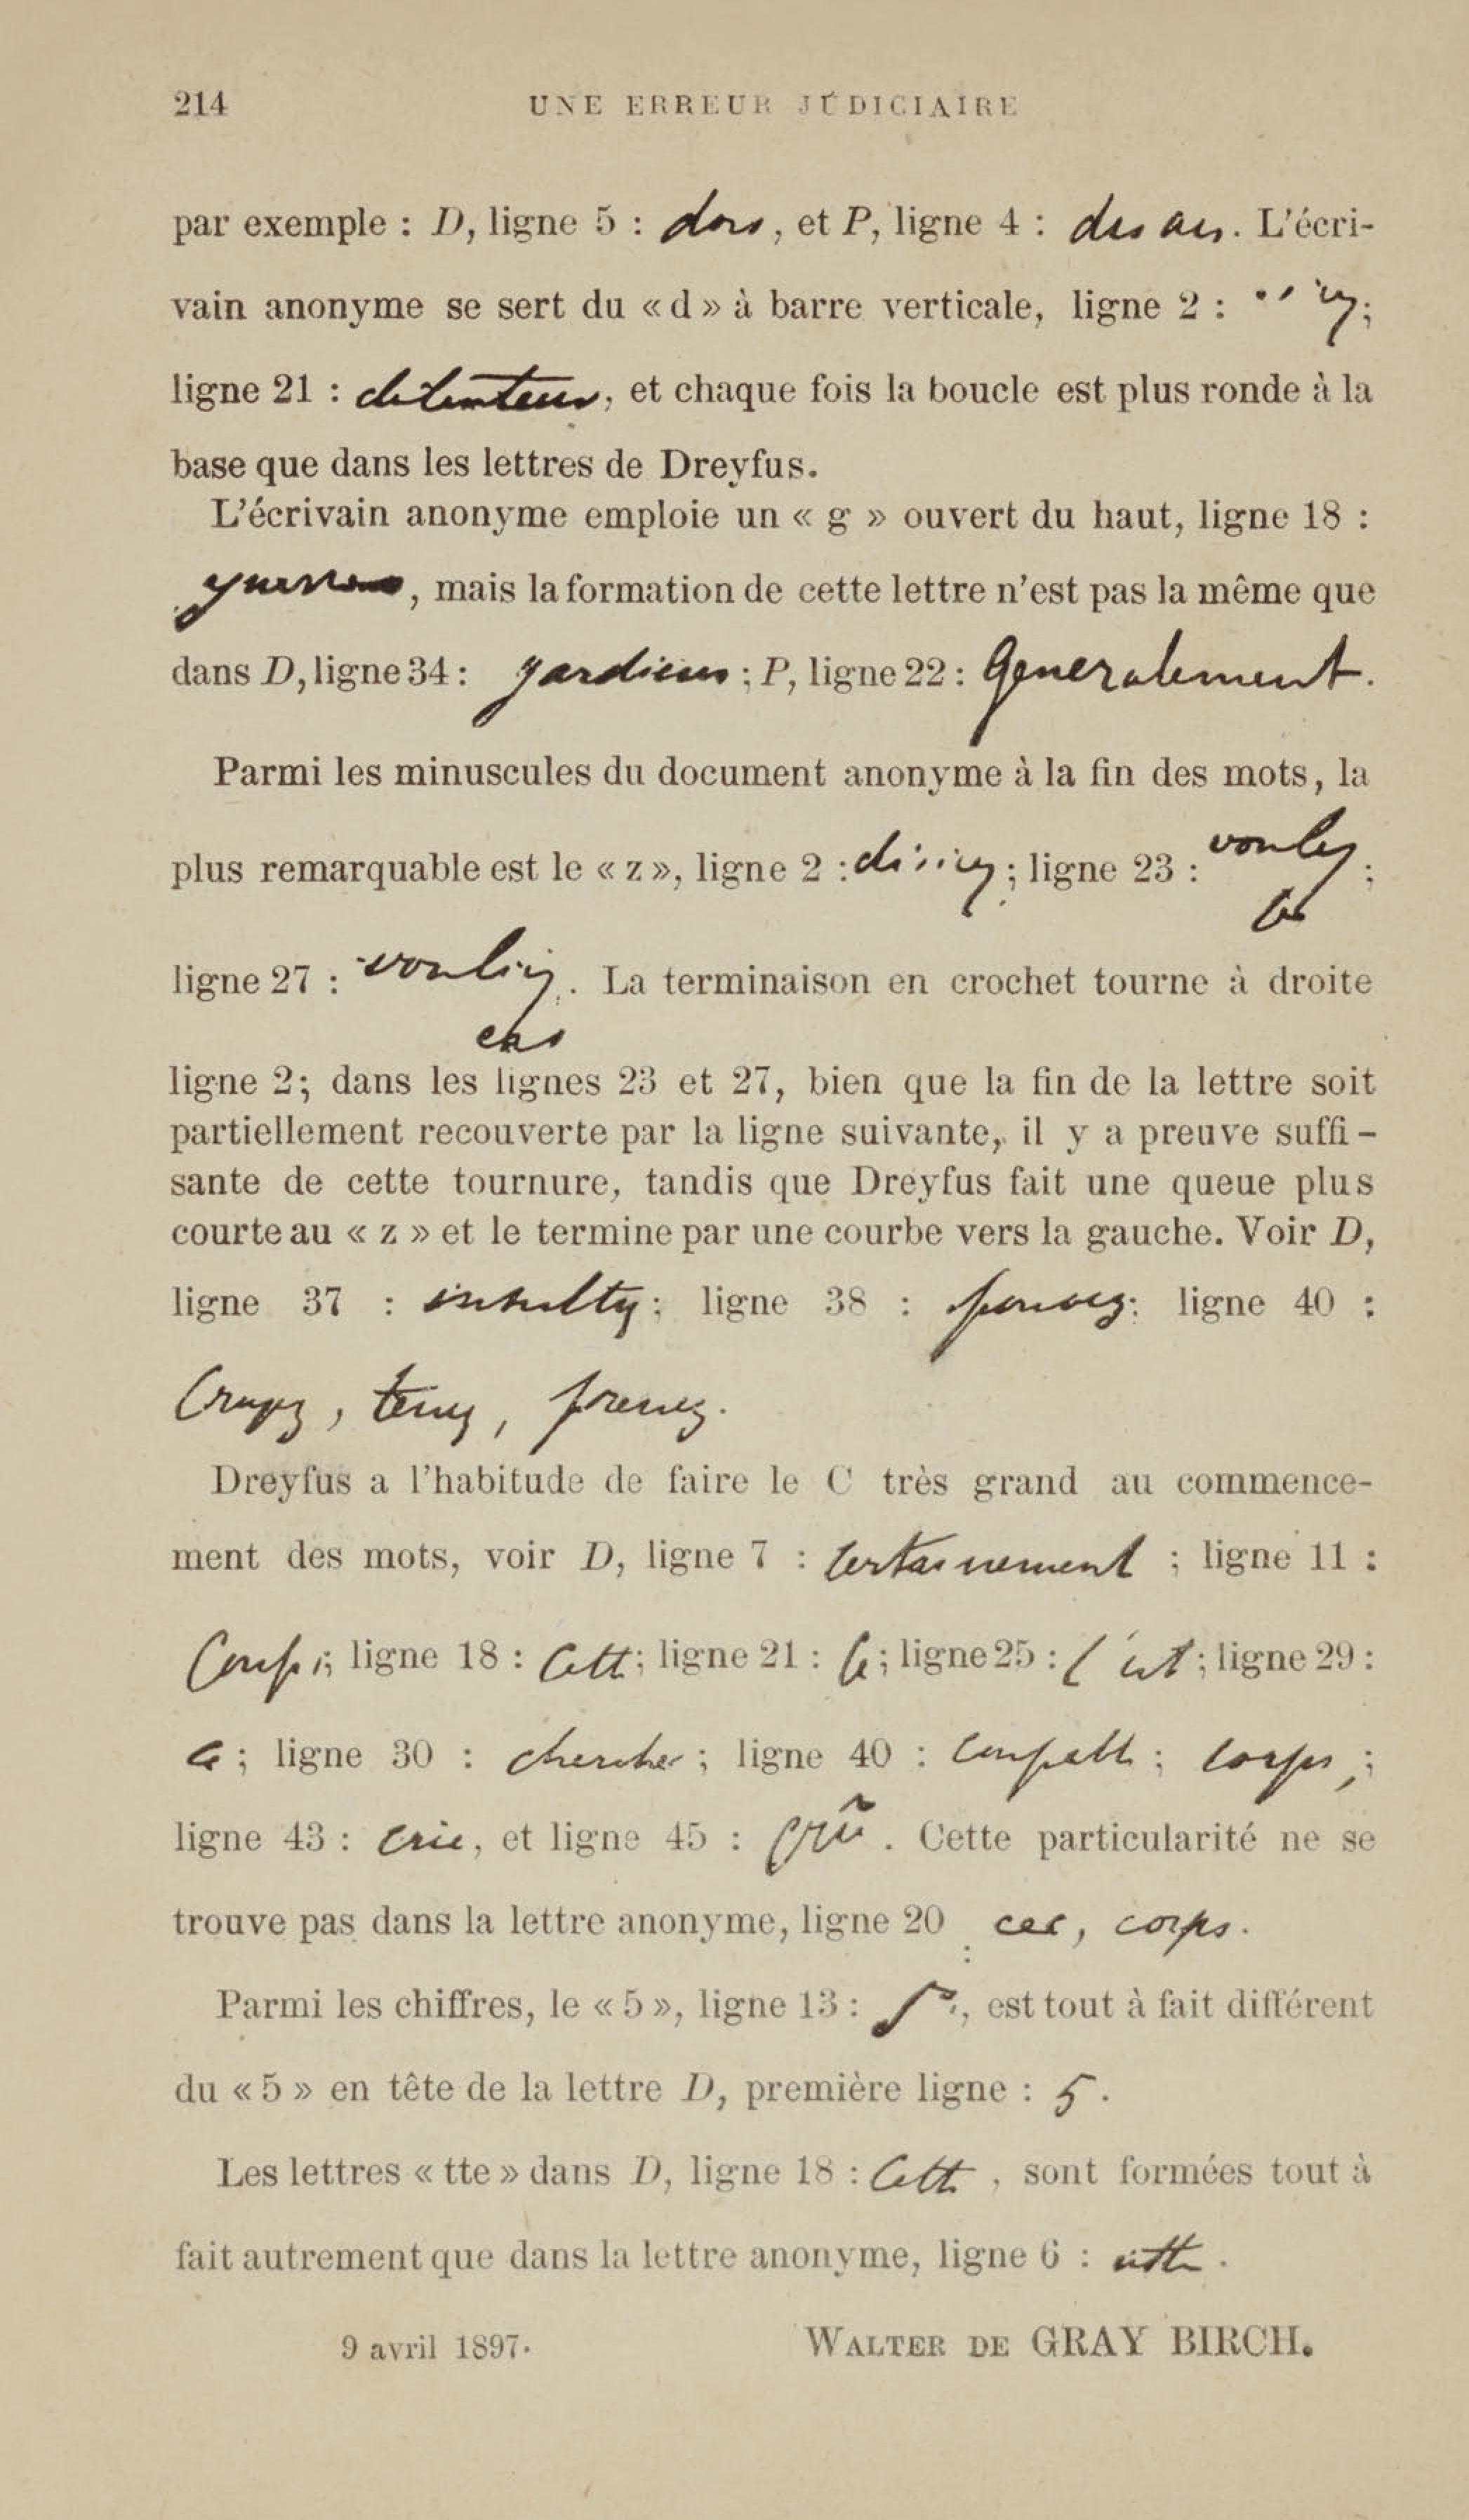 214 UNE ERREUR JUDICIAIRE
par exemple : D, ligne 5 : dors, et P, ligne 4 : des as. L'écri-
vain anonyme se sert du « d » à barre verticale, ligne 2 :
ligne 21 : detenteur, et chaque fois la boucle est plus ronde à la
base que dans les lettres de Dreyfus.
L'écrivain anonyme emploie un « g » ouvert du haut, ligne 18 :
guerre, mais la formation de cette lettre n'est pas la même que
dans D, ligne 34 : gardiens ; P, ligne 22 : Generalement.
Parmi les minuscules du document anonyme à la fin des mots, la
plus remarquable est le « z », ligne 2 : désirez ; ligne 23 : voulez ;
ligne 27 : vouliez. La terminaison en crochet tourne à droite
ligne 2; dans les lignes 23 et 27, bien que la fin de la lettre soit
partiellement recouverte par la ligne suivante, il y a preuve suffi-
sante de cette tournure, tandis que Dreyfus fait une queue plus
courte au « z » et le termine par une courbe vers la gauche. Voir D,
ligne 37 : insultez; ligne 38 : pouvez; ligne 40 :
Crapez, tenez, prenez.
Dreyfus a l'habitude de faire le C très grand au commence-
ment des mots, voir D, ligne 7 : Certainement ; ligne 11 :
Corps; ligne 18 : Cette; ligne 21 : Ce; ligne 25 : C'est; ligne 29 :
Ce; ligne 30 : chercher; ligne 40 : coupable; corps;
ligne 43 : crie, et ligne 45 : . Cette particularité ne se
trouve pas dans la lettre anonyme, ligne 20 : ces, corps.
Parmi les chiffres, le « 5 », ligne 13 : 5, est tout à fait différent
du « 5 » en tête de la lettre D, première ligne : 5.
Les lettres « tte » dans D, ligne 18 : Cette, sont formées tout à
fait autrement que dans la lettre anonyme, ligne 6 : ette.
9 avril 1897. WALTER DE GRAY BIRCH.